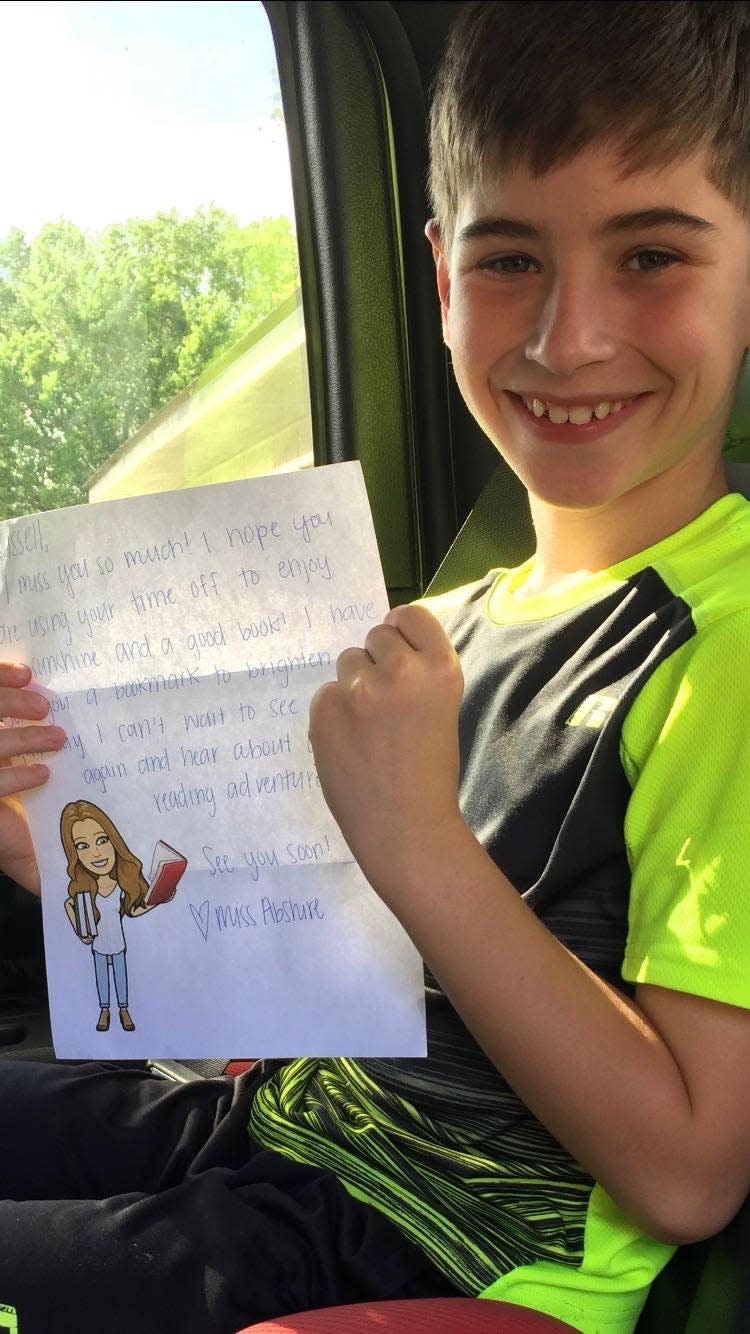 ssell,
I miss you so much! I hope you
are using your time off to enjoy
sunshine and a good book! I have
you a bookmark to brighten
I can't wait to see
again and hear about
reading adventur
See you soon!
♡ Miss Abshire